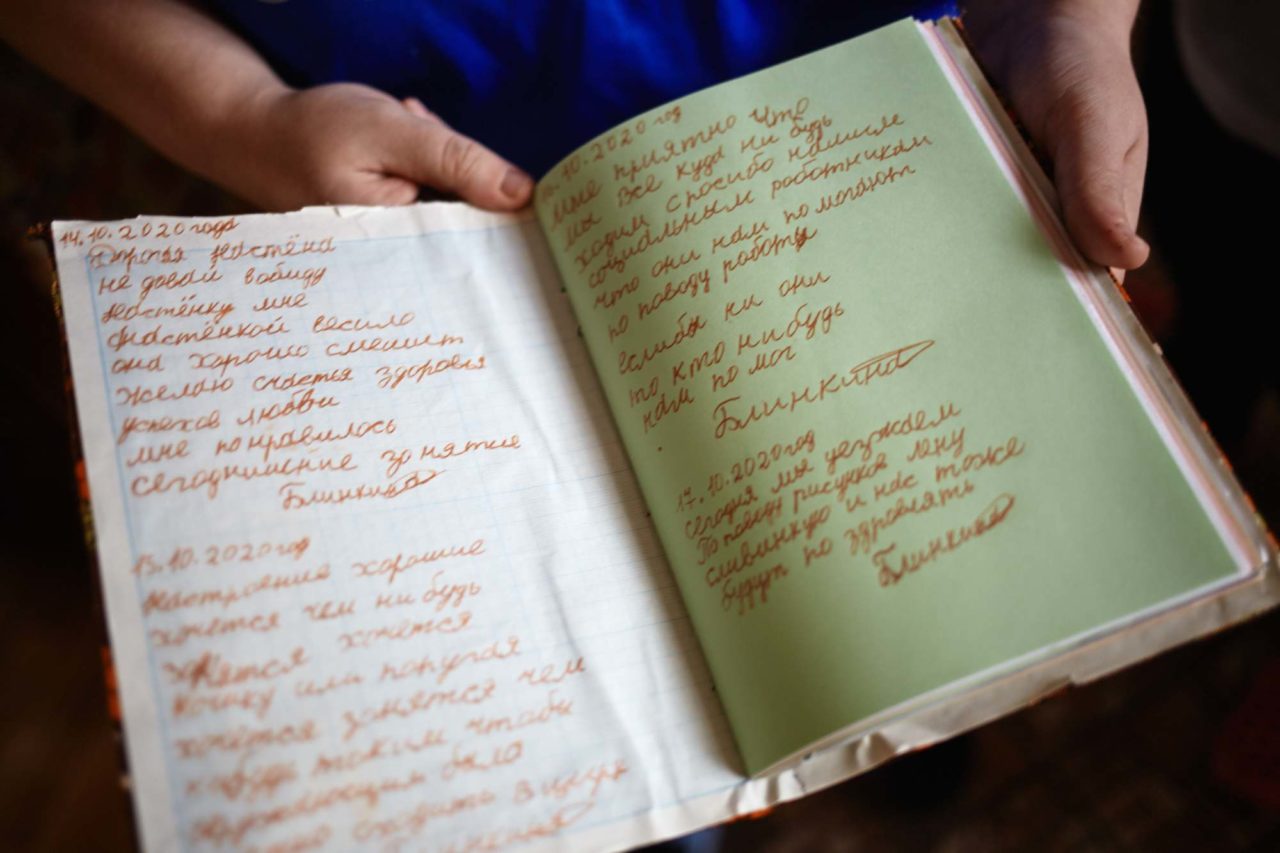 14.10.2020 года
Дорогая Настёна
не давай вобиду
Настёнку мне
снастёнкой весило
она хорошо смешит
желаю счастья здоровья
успехов любви
мне понравилось
сегоднишние занятие
Блинкина
15.10.2020 год
Настроение хорошие
хочется чем нибудь
хочется
кошку или попугая
хочется занятся чем
таким чтобы
было
сходить в цирк
10.2020 год
мне приятно что
мы все куда ни будь
ходим спосибо нашим
социальным роботникам
что они нам по могают
по поводу работы
еслибы ни они
то кто нибудь
нам по мог
Блинкина
17.10.2020 год
сегодня мы уезжаем
По поводу рисунков лену
сливинкую и нас тоже
будут по здровлять
Блинкина